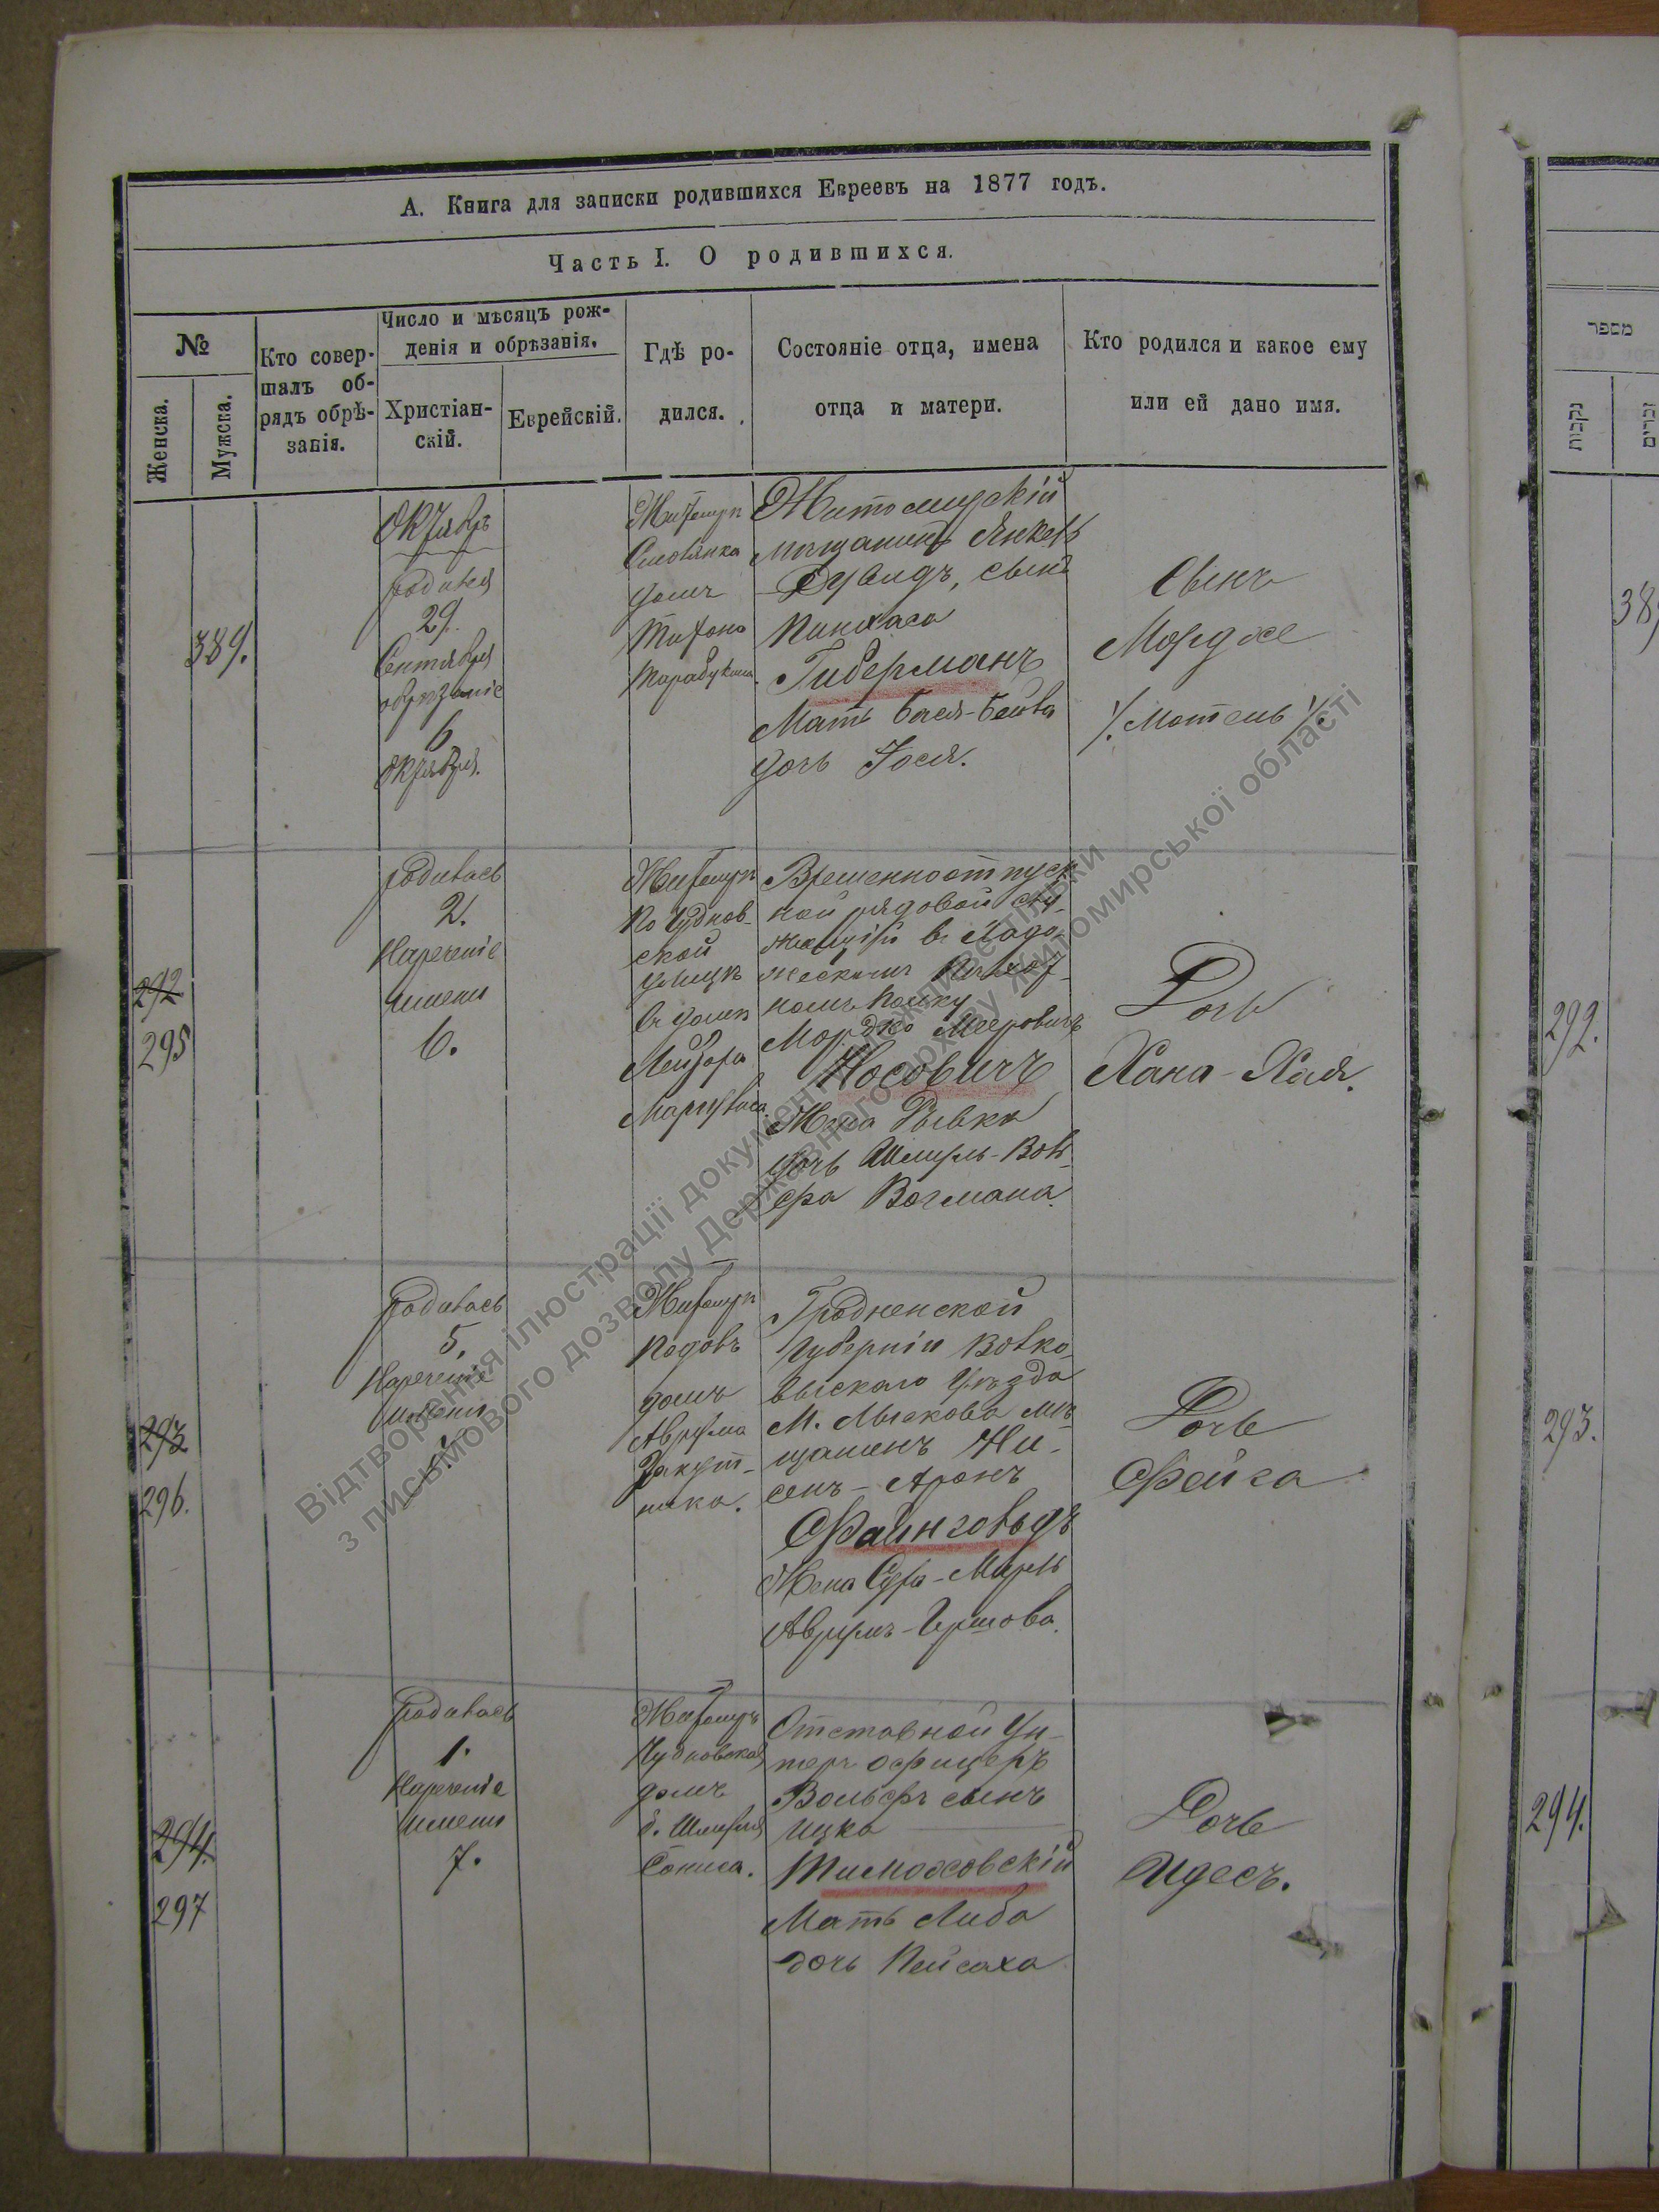 А. Книга для записки родившихся Евреевъ на 1877 годъ.
Часть I. О родившихся.
№
Женска.
Мужска.
Кто совер-
шалъ об-
рядъ обрѣ-
занія.
Число и мѣсяцъ рож-
денія и обрѣзанія.
Христіан-
скій.
Еврейскій.
Гдѣ ро-
дился.
Состояніе отца, имена
отца и матери.
Кто родился и какое ему
или ей дано имя.
389.
Октябрь
родился
29.
Сентября
обрезаніе
6
Октября.
Житомиръ
домъ
Житомирскій
мѣщанинъ Янкель
Дувидъ, сынъ
Пинхаса
Гиберманъ
Мать Бася-Бейла
дочь Іося.
Сынъ
Мордхе
/. Мотель ./
292
295
родилась
2.
Нареченіе
имени
6.
Житомиръ
по Чуднов-
ской
улицѣ
въ домѣ
Лейзора
Временноотпуск-
ной рядовой слу-
жащій въ Ладо-
жескомъ Пѣхот-
номъ полку
Мордко Мееровичъ
Носовичъ
Жена Рывка
дочь Шмуль-Вол-
фа Вогмана.
Дочь
Хана-Хая.
293
296.
родилась
5.
Нареченіе
имени
Житомиръ
Подолъ
домъ
Аврума
Закут-
ника.
Гродненской
губерніи Волко-
выскаго уѣзда
М. Лыскова мѣ-
щанинъ Ни-
сенъ-Аронъ
Файнгольдъ
Жена Сура-Мирль
Аврумъ-Гершова.
Дочь
Фейга
294.
297
родилась
1.
Нареченіе
имени
7.
Житомиръ
Чудновская
домъ
б. Шмуля
Отставной Ун-
теръ офицеръ
Вольфъ сынъ
Ицка
Тимоховскій
Мать Либа
дочь Пейсаха
Дочь
Идесъ.
מספר
נקבות
זכרים
38
292.
293.
294.
Відтворення ілюстрації документа можливе тільки
з письмового дозволу Державного архіву Житомирської області